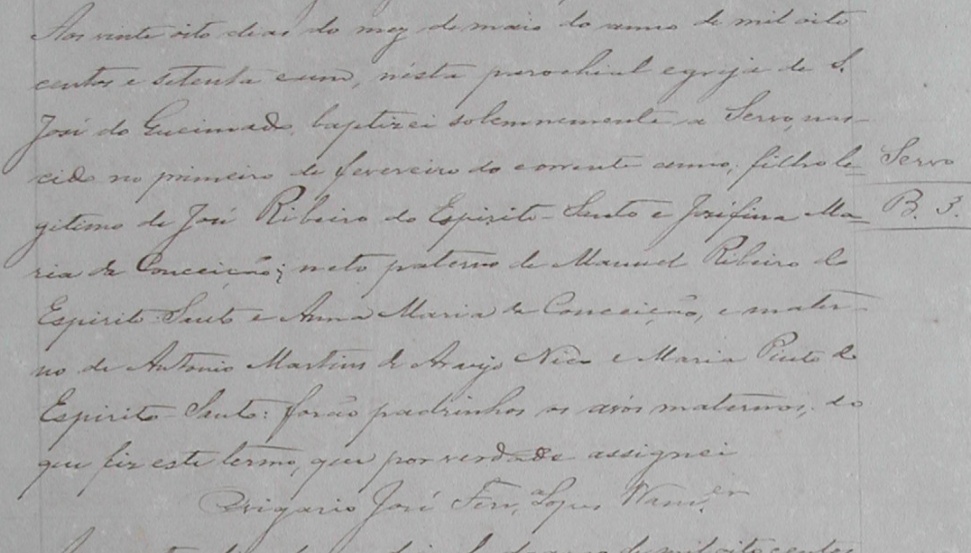 Aos vinte oito dias do mez de maio do anno de mil oito
centos e setenta e um, nésta parochial egreja de S.
José do Queimado, baptizei solemnemente a Servo, nas-
cido no primeiro de fevereiro do corrente anno, filho le-
Servo
gitimo de José Ribeiro do Espirito-Santo e Josefina Ma-
B. 3.
ria da Conceição; neto paterno de Manuel Ribeiro do
Espirito Santo e Anna Maria da Conceição, e mater-
no de Antonio Martins de Araujo Nico e Maria Pinto do
Espirito-Santo: forão padrinhos os avós maternos, do
que fiz este termo, que por verdade assignei
O vigario José Ferr.ª Lopes